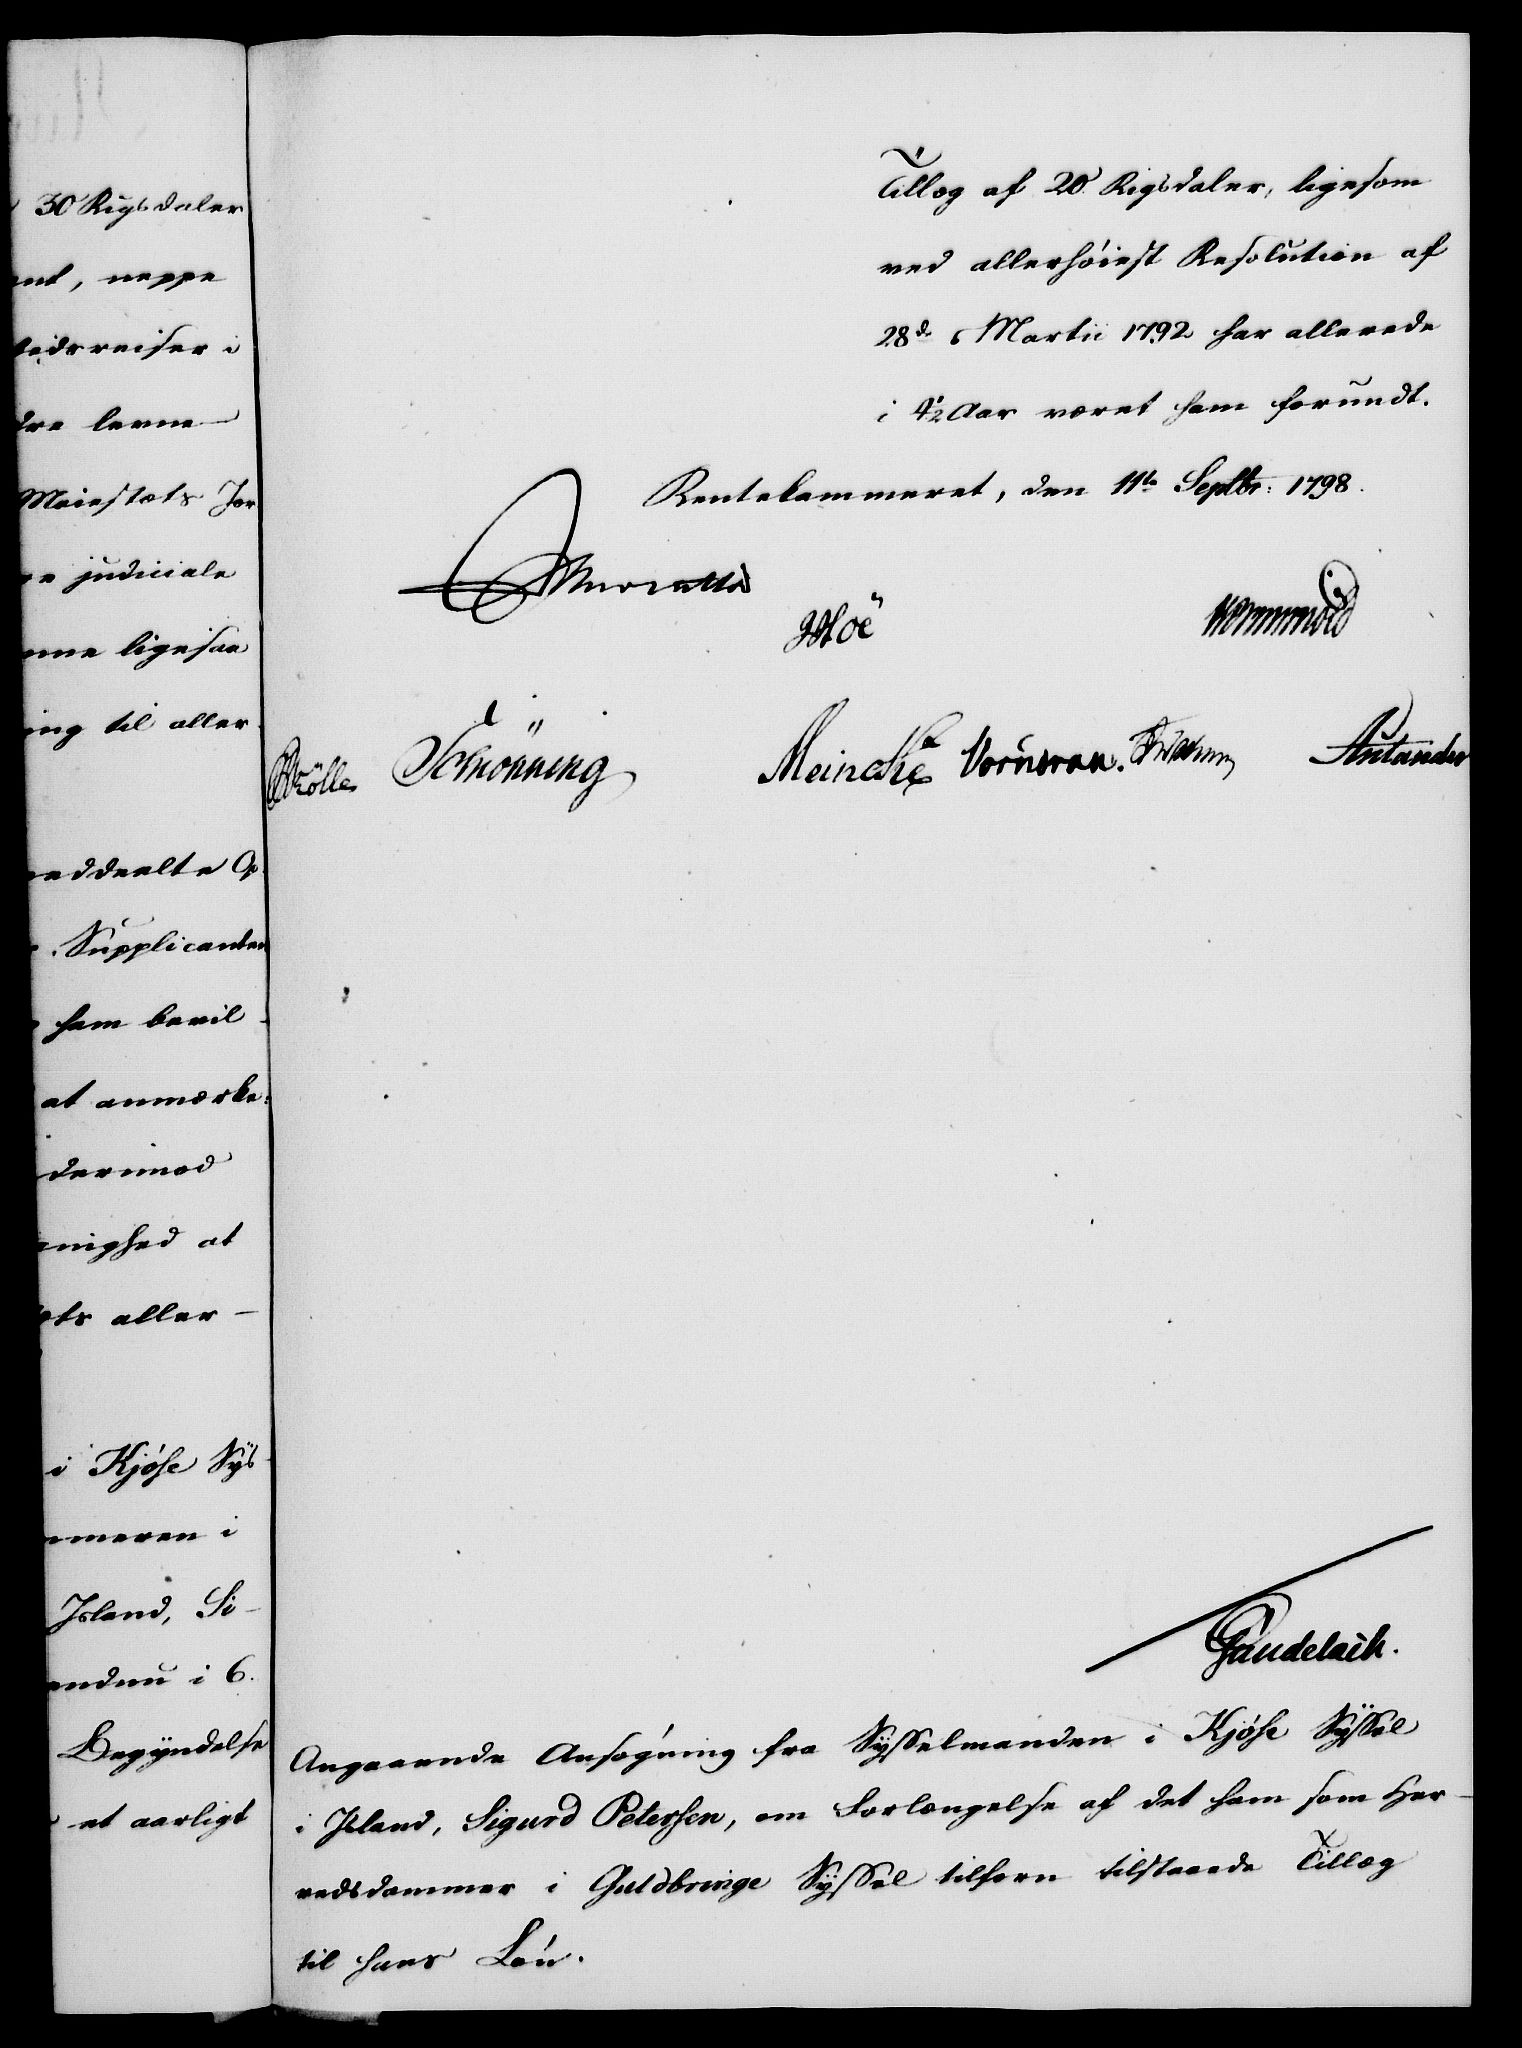 30 Rigsdaler
nt, neppe
reiser i
dre levne
Maiestæts Jor
judiciale
ligesaa
ing til aller-
meddeelte Op
Supplicanten
ham bevil-
at anmærke:
derimod
at
aller-
i Kjøse Sys-
meren i
Island, Si-
endnu i 6.
Begyndelse
et aarligt
Tillæg af 20 Rigsdaler, ligesom
ved allerhöiest Resolution af
28de Martii 1792 har allerede
i 4½ Aar været ham forundt.
Rentekammeret, den 11te Septbr: 1798.
Moratti
Hoë
Wormskiold
Rölle
Schönning
Meincke
Vornoran.
Autander
Gaudelach.
Angaaende Ansøgning fra Sysselmanden i Kjøse Syssel
i Island, Sigurd Petersen, om Forlængelse af det ham som Her-
redsdommer i Guldbringe Syssel tilforn tilstaaede Tillæg
til hans Løn.